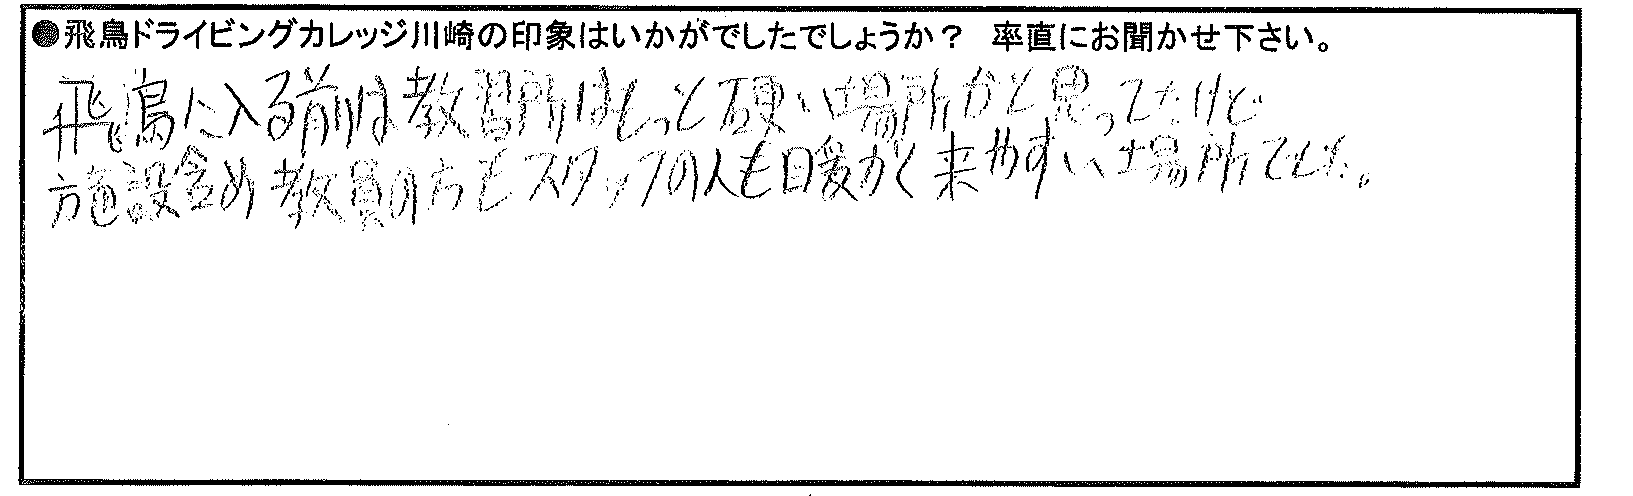 ●飛鳥ドライビングカレッジ川崎の印象はいかがでしたでしょうか？ 率直にお聞かせ下さい。
飛鳥に入る前は教習所はもっと硬い場所かと思ってたけど
施設含め教員の方もスタッフの人も暖かく来やすい場所でした。